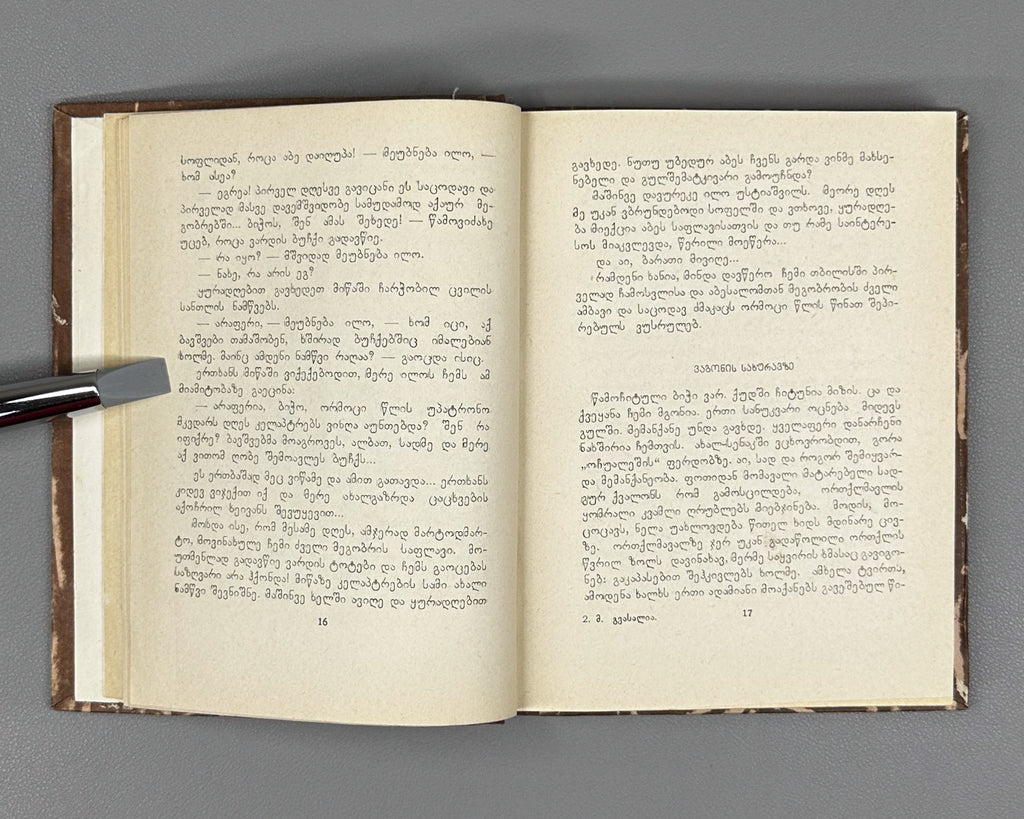 სოფლიდან, როცა აბე დაიღუპა! — მეუბნება ილო, —
ხომ ასეა?
— ეგრეა! პირველ დღესვე გავიცანი ეს საცოდავი და
პირველად მასვე დავემშვიდობე სამუდამოდ აქაურ მე-
გობრებში... ბიჭოს, შენ ამას შეხედე! — წამოვიძახე
უცებ, როცა ვარდის ბუჩქი გადავწიე.
— რა იყო? — მშვიდად მეუბნება ილო.
— ნახე, რა არის ეგ?
ყურადღებით გავხედეთ მიწაში ჩარჭობილ ცვილის
სანთლის ნამწვებს.
— არაფერი, — მეუბნება ილო, — ხომ იცი, აქ
ბავშვები თამაშობენ, ხშირად ბუჩქებშიც იმალებიან
ხოლმე. მაინც ამდენი ნამწვი რაღაა? — გაოცდა ისიც.
ერთხანს მიწაში ვიქექებოდით, მერე ილოს ჩემს ამ
მიამიტობაზე გაეცინა:
— არაფერია, ბიჭო, ორმოცი წლის უპატრონო
მკვდარს დღეს კელაპტრებს ვინღა აუნთებდა? შენ რა
იფიქრე? ბავშვებმა მოაგროვეს, ალბათ, სადმე და მერე
აქ ვითომ ღობე შემოავლეს ბუჩქს...
ეს ერთბაშად მეც ვიწამე და ამით გათავდა... ერთხანს
კიდევ ვიჯექით იქ და მერე ახალგაზრდა ცაცხვების
აქოჩრილ ხეივანს შევუყევით...
მოხდა ისე, რომ მესამე დღეს, ამჯერად მარტოდმარ-
ტო, მოვინახულე ჩემი ძველი მეგობრის საფლავი. მო-
უთმენლად გადავწიე ვარდის ტოტები და ჩემს გაოცებას
საზღვარი არა ჰქონდა! მიწაზე კელაპტრების სამი ახალი
ნამწვი შევნიშნე. მაშინვე ხელში ავიღე და ყურადღებით
16
გავხედე. ნუთუ უბედურ აბეს ჩვენს გარდა ვინმე მახსე-
ნებელი და გულშემატკივარი გამოუჩნდა?
მაშინვე დავურეკე ილო უსტიაშვილს. მეორე დღეს
მე უკან ვბრუნდებოდი სოფელში და ვთხოვე, ყურადღე-
ბა მიექცია აბეს საფლავისათვის და თუ რამე საინტერე-
სოს მიაკვლევდა, წერილი მოეწერა...
და აი, ბარათი მივიღე...
რამდენი ხანია, მინდა დავწერო ჩემი თბილისში პირ-
ველად ჩამოსვლისა და აბესალომთან მეგობრობის ძველი
ამბავი და საცოდავ ძმაკაცს ორმოცი წლის წინათ შეპი-
რებულს ვუსრულებ.
ვაგონის სახურავზე
წამოჩიტული ბიჭი ვარ. ქუდში ჩიტუნია მიზის. ცა და
ქვეყანა ჩემი მგონია. ერთი სანუკვარი ოცნება მიდევს
გულში. მემანქანე უნდა გავხდე. ყველაფერი დანარჩენი
ნახშირია ჩემთვის. ახალ-სენაკში ვცხოვრობდით, გორა
„ოჩუალეშის“ ფერდობზე. აი, სად და როგორ შემიყვარ-
და მემანქანეობა. ფოთიდან მომავალი მატარებელი სად-
გურ ქვალონს რომ გამოსცილდება, ორთქლმავლის
ყომრალი კვამლი ღრუბლებს მიებჯინება. მოდის, მო-
ცოცავს, ნელა უახლოვდება წითელ ხიდს მდინარე ცივ-
ზე. ორთქლმავალზე ჯერ უკან გადაწოლილი ორთქლის
წვრილ ზოლს დავინახავ, მერმე საყვირის ხმასაც გავიგო-
ნებ: გაკაპასებით შეჰკივლებს ხოლმე. ამხელა ტვირთს,
ამოდენა ხალხს ერთი ადამიანი მოაქანებს გავეშებულ წი-
2. მ. გვასალია.
17